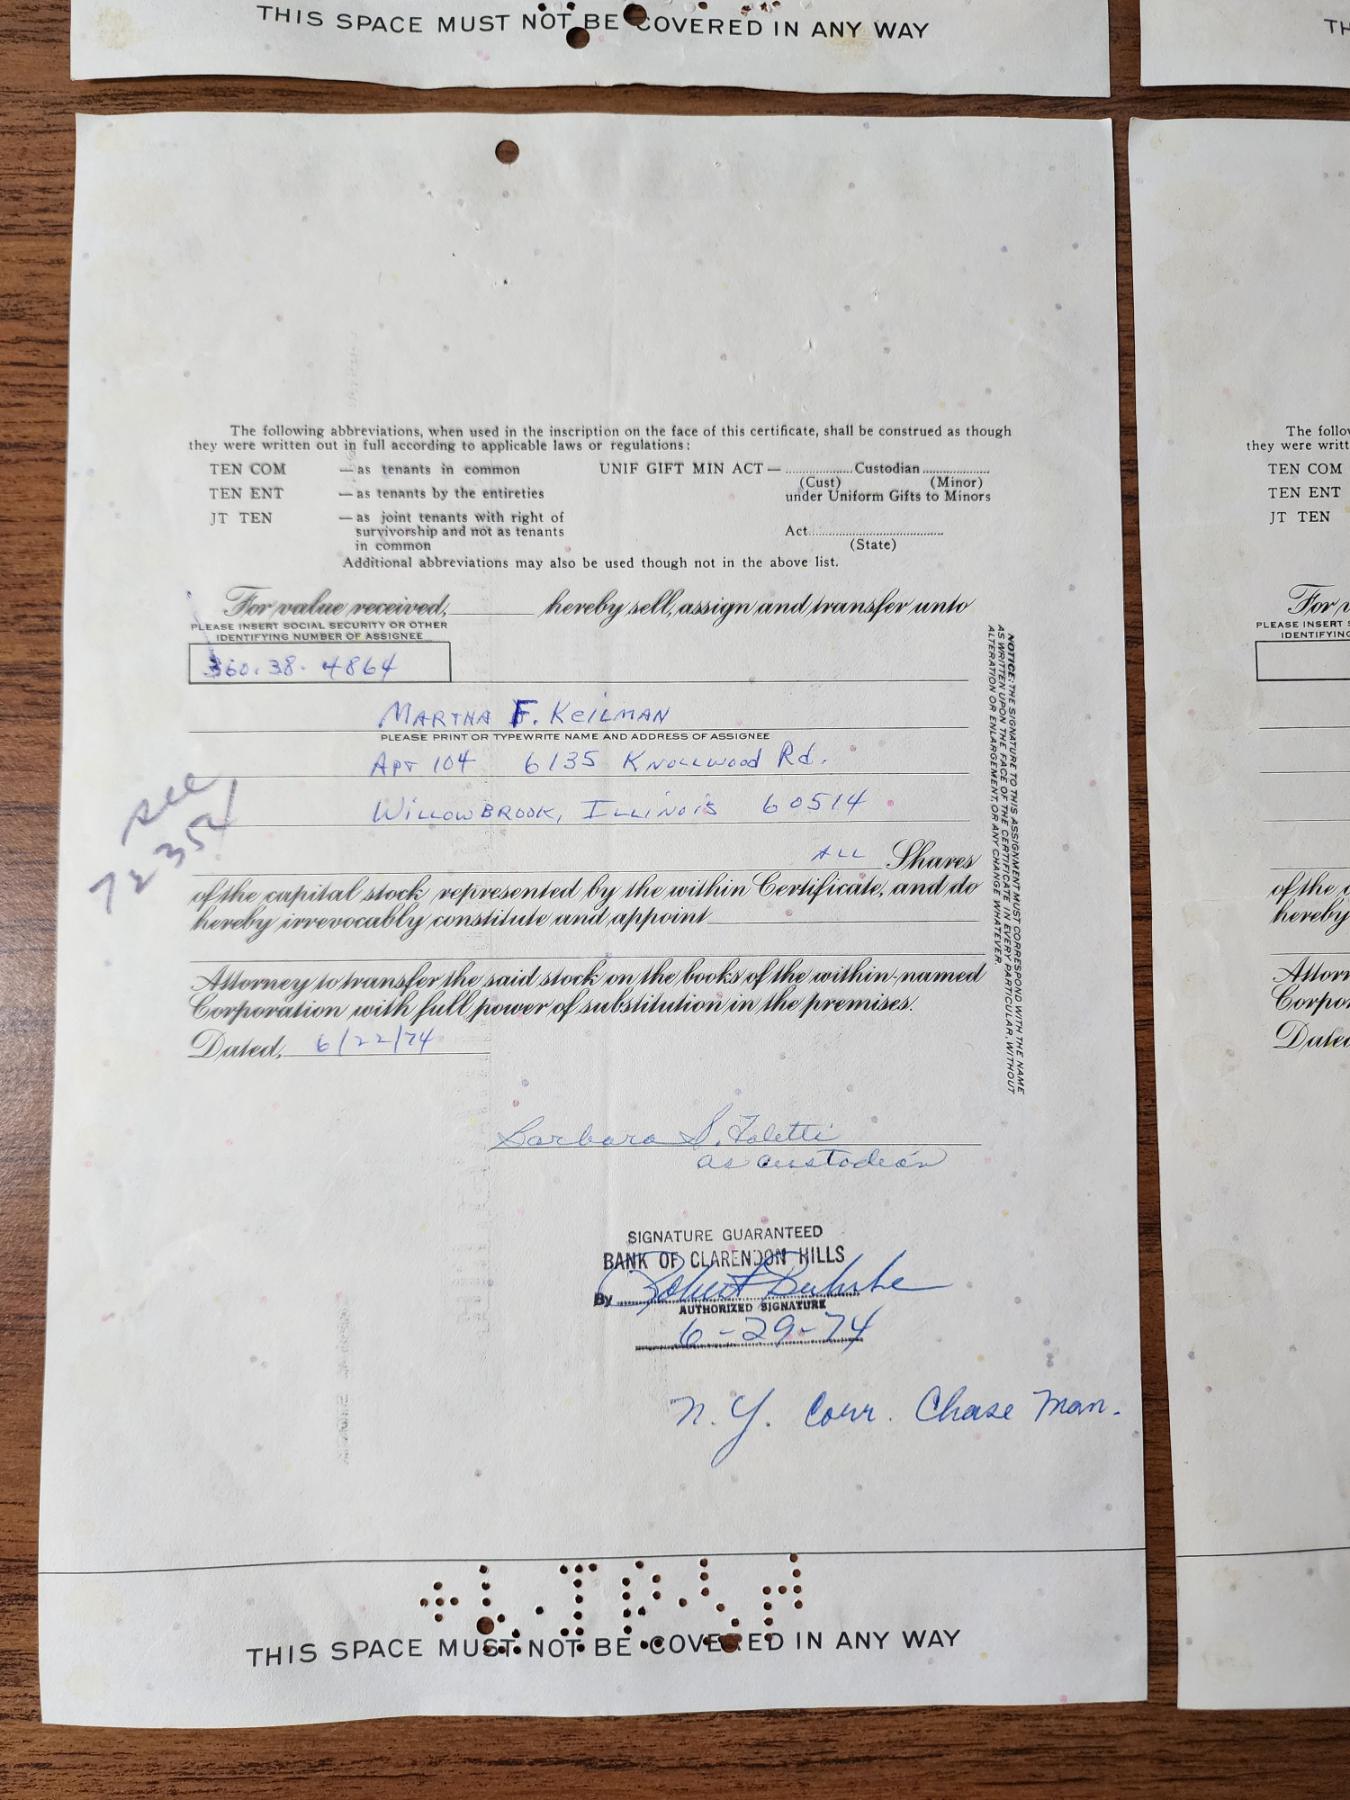 THIS SPACE MUST NOT BE COVERED IN ANY WAY
TH
The following abbreviations, when used in the inscription on the face of this certificate, shall be construed as though
they were written out in full according to applicable laws or regulations:
TEN COM — as tenants in common UNIF GIFT MIN ACT — Custodian
(Cust) (Minor)
TEN ENT — as tenants by the entireties under Uniform Gifts to Minors
JT TEN — as joint tenants with right of
survivorship and not as tenants
in common
Act
(State)
Additional abbreviations may also be used though not in the above list.
For value received, hereby sell, assign and transfer unto
PLEASE INSERT SOCIAL SECURITY OR OTHER
IDENTIFYING NUMBER OF ASSIGNEE
360.38.4864
MARTHA F. KEILMAN
PLEASE PRINT OR TYPEWRITE NAME AND ADDRESS OF ASSIGNEE
APT 104 6135 KNOLLWOOD Rd.
WILLOWBROOK, ILLINOIS 60514
see
72351
ALL Shares
of the capital stock represented by the within Certificate, and do
hereby irrevocably constitute and appoint
Attorney to transfer the said stock on the books of the within-named
Corporation with full power of substitution in the premises.
Dated, 6/22/74
NOTICE: THE SIGNATURE TO THIS ASSIGNMENT MUST CORRESPOND WITH THE NAME
AS WRITTEN UPON THE FACE OF THE CERTIFICATE IN EVERY PARTICULAR, WITHOUT
ALTERATION OR ENLARGEMENT, OR ANY CHANGE WHATEVER.
Barbara S. Foletti
as custodian
SIGNATURE GUARANTEED
BANK OF CLARENDON HILLS
By Robert
AUTHORIZED SIGNATURE
6-29-74
N.Y. Corr. Chase Man.
THIS SPACE MUST NOT BE COVERED IN ANY WAY
The follo
they were writt
TEN COM
TEN ENT
JT TEN
For v
PLEASE INSERT S
IDENTIFYING
of the c
hereby
Attorn
Corpor
Dated